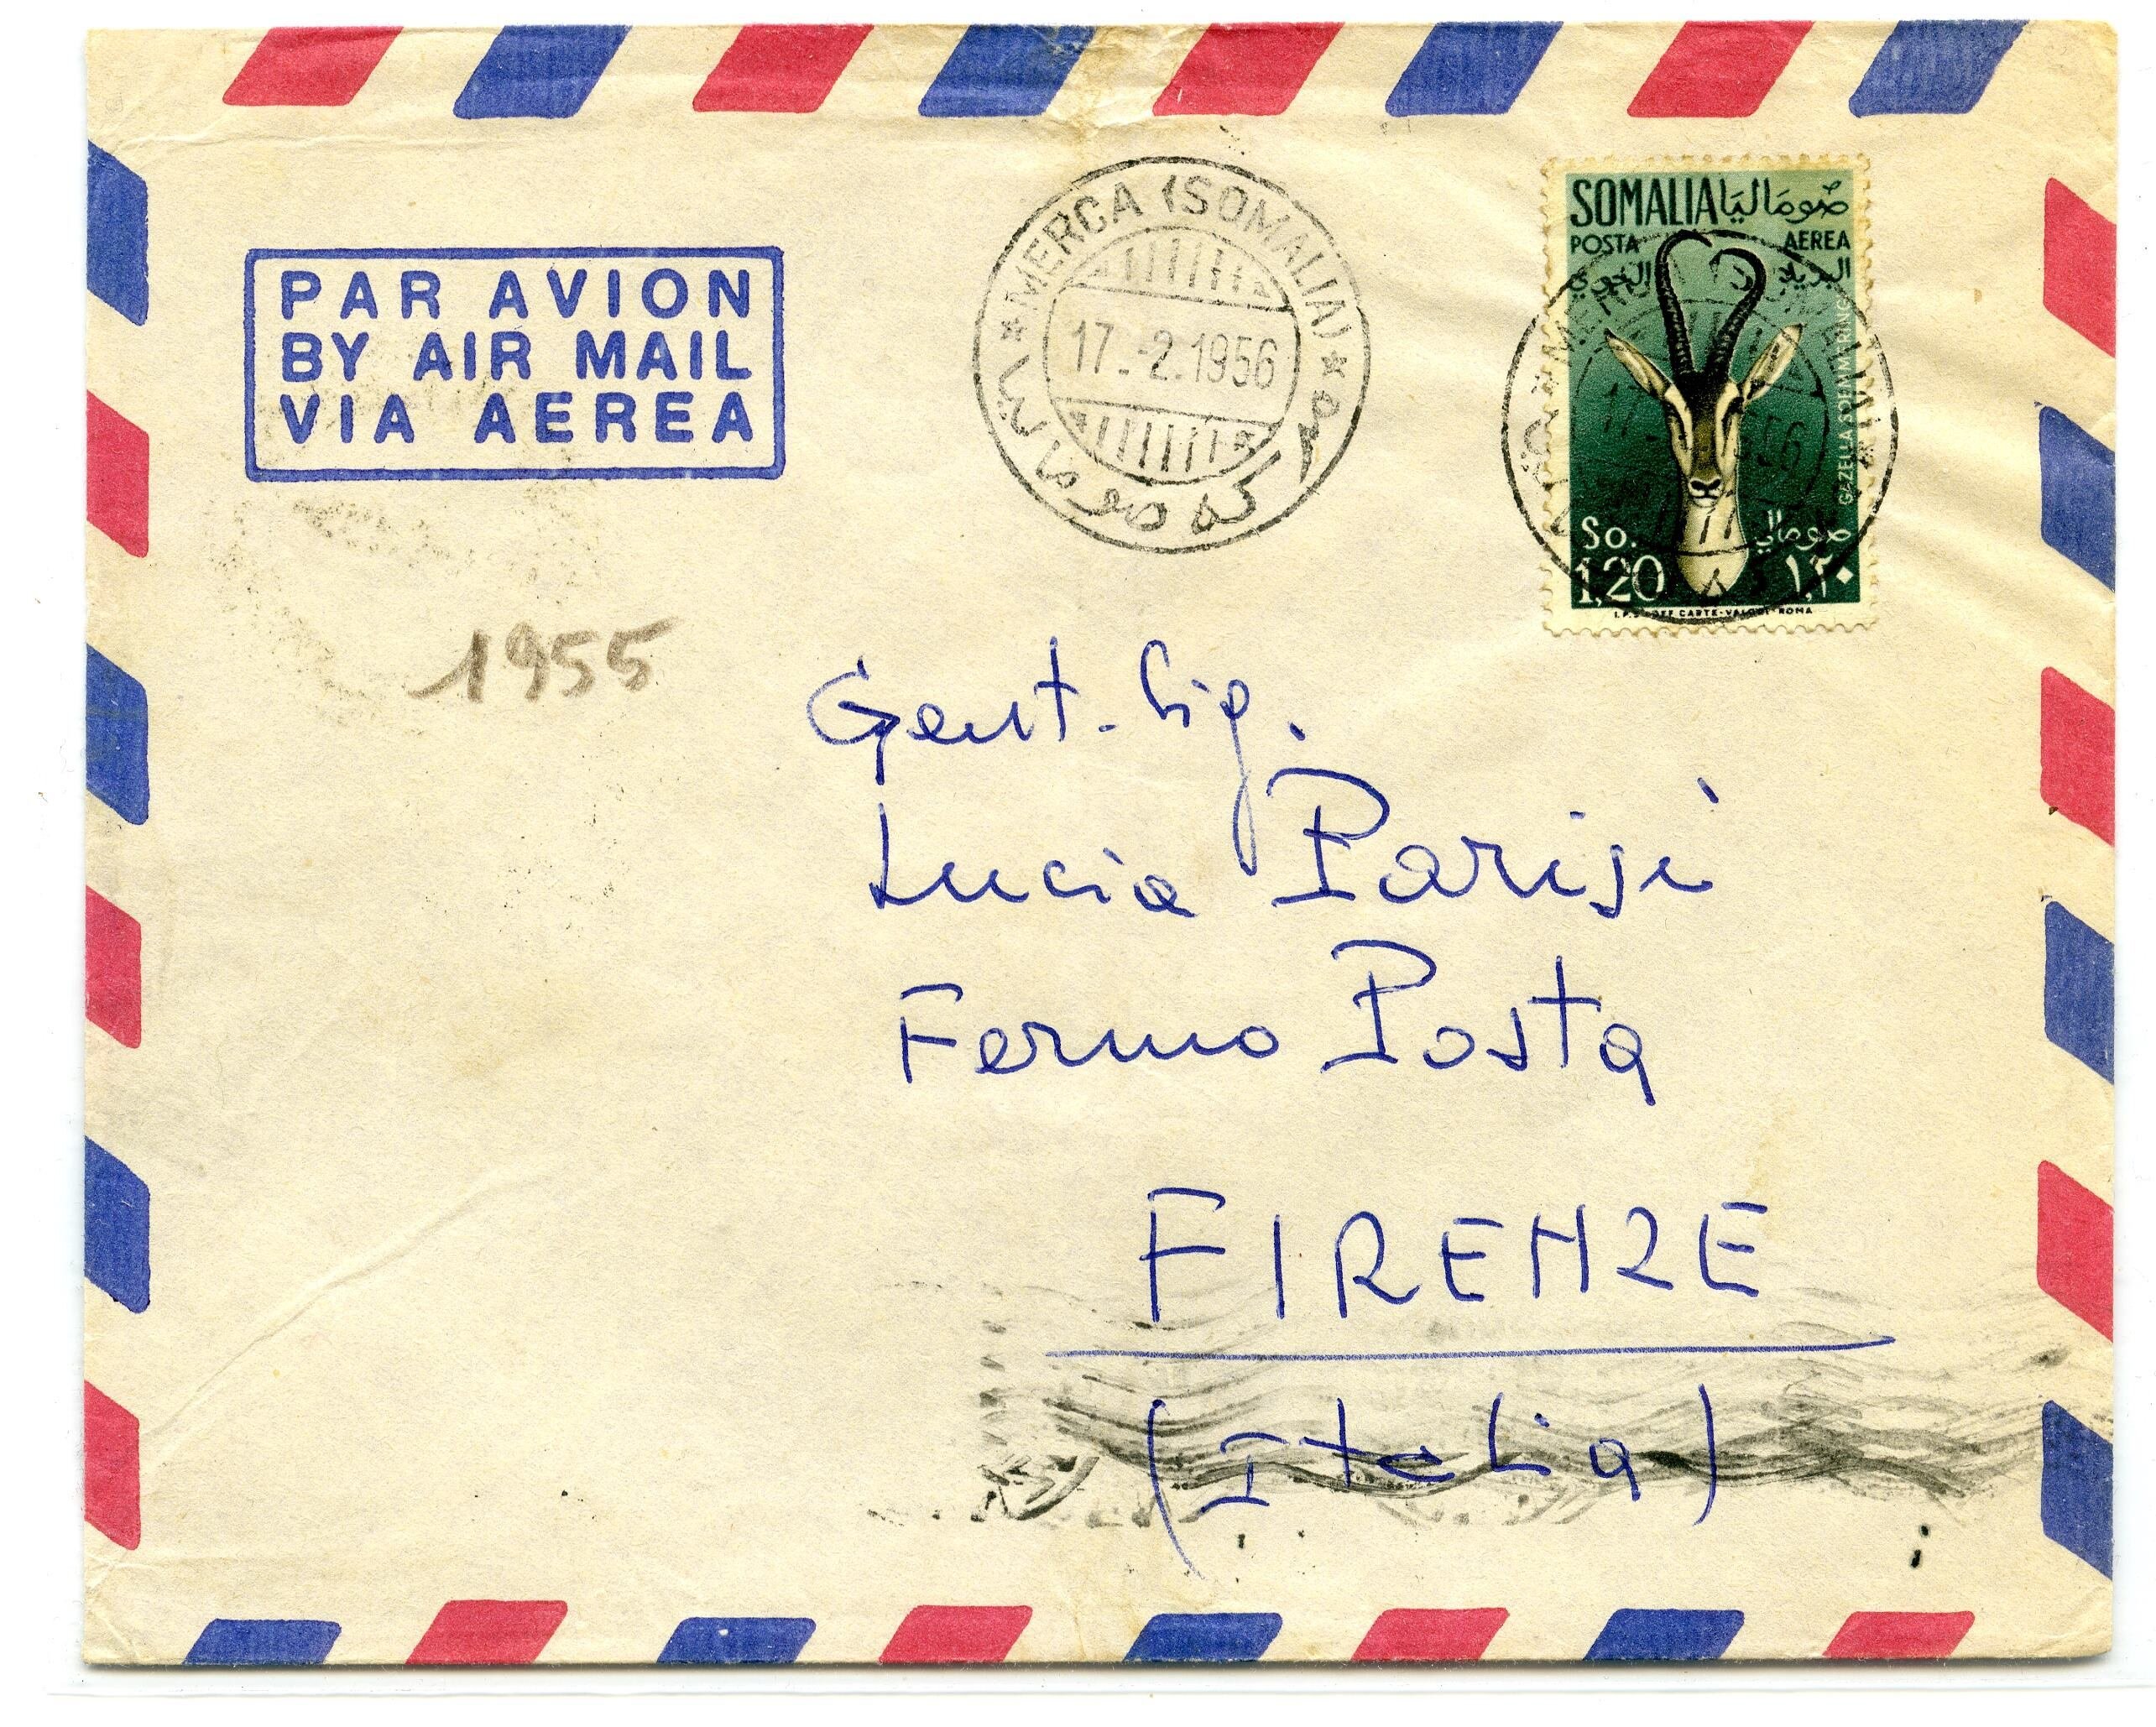 PAR AVION
BY AIR MAIL
VIA AEREA
* MERCA (SOMALIA) *
17.-2.1956
SOMALIA صومَاليَا
POSTA AEREA
البريد الجوي
GAZELLA SOEMMERINGI
So. صومالي
1,20 ١,٢٠
I.P.S. OFF. CARTE-VALORI-ROMA
1955
Gent. Sig.
Lucia Parisi
Fermo Posta
FIRENZE
(Italia)